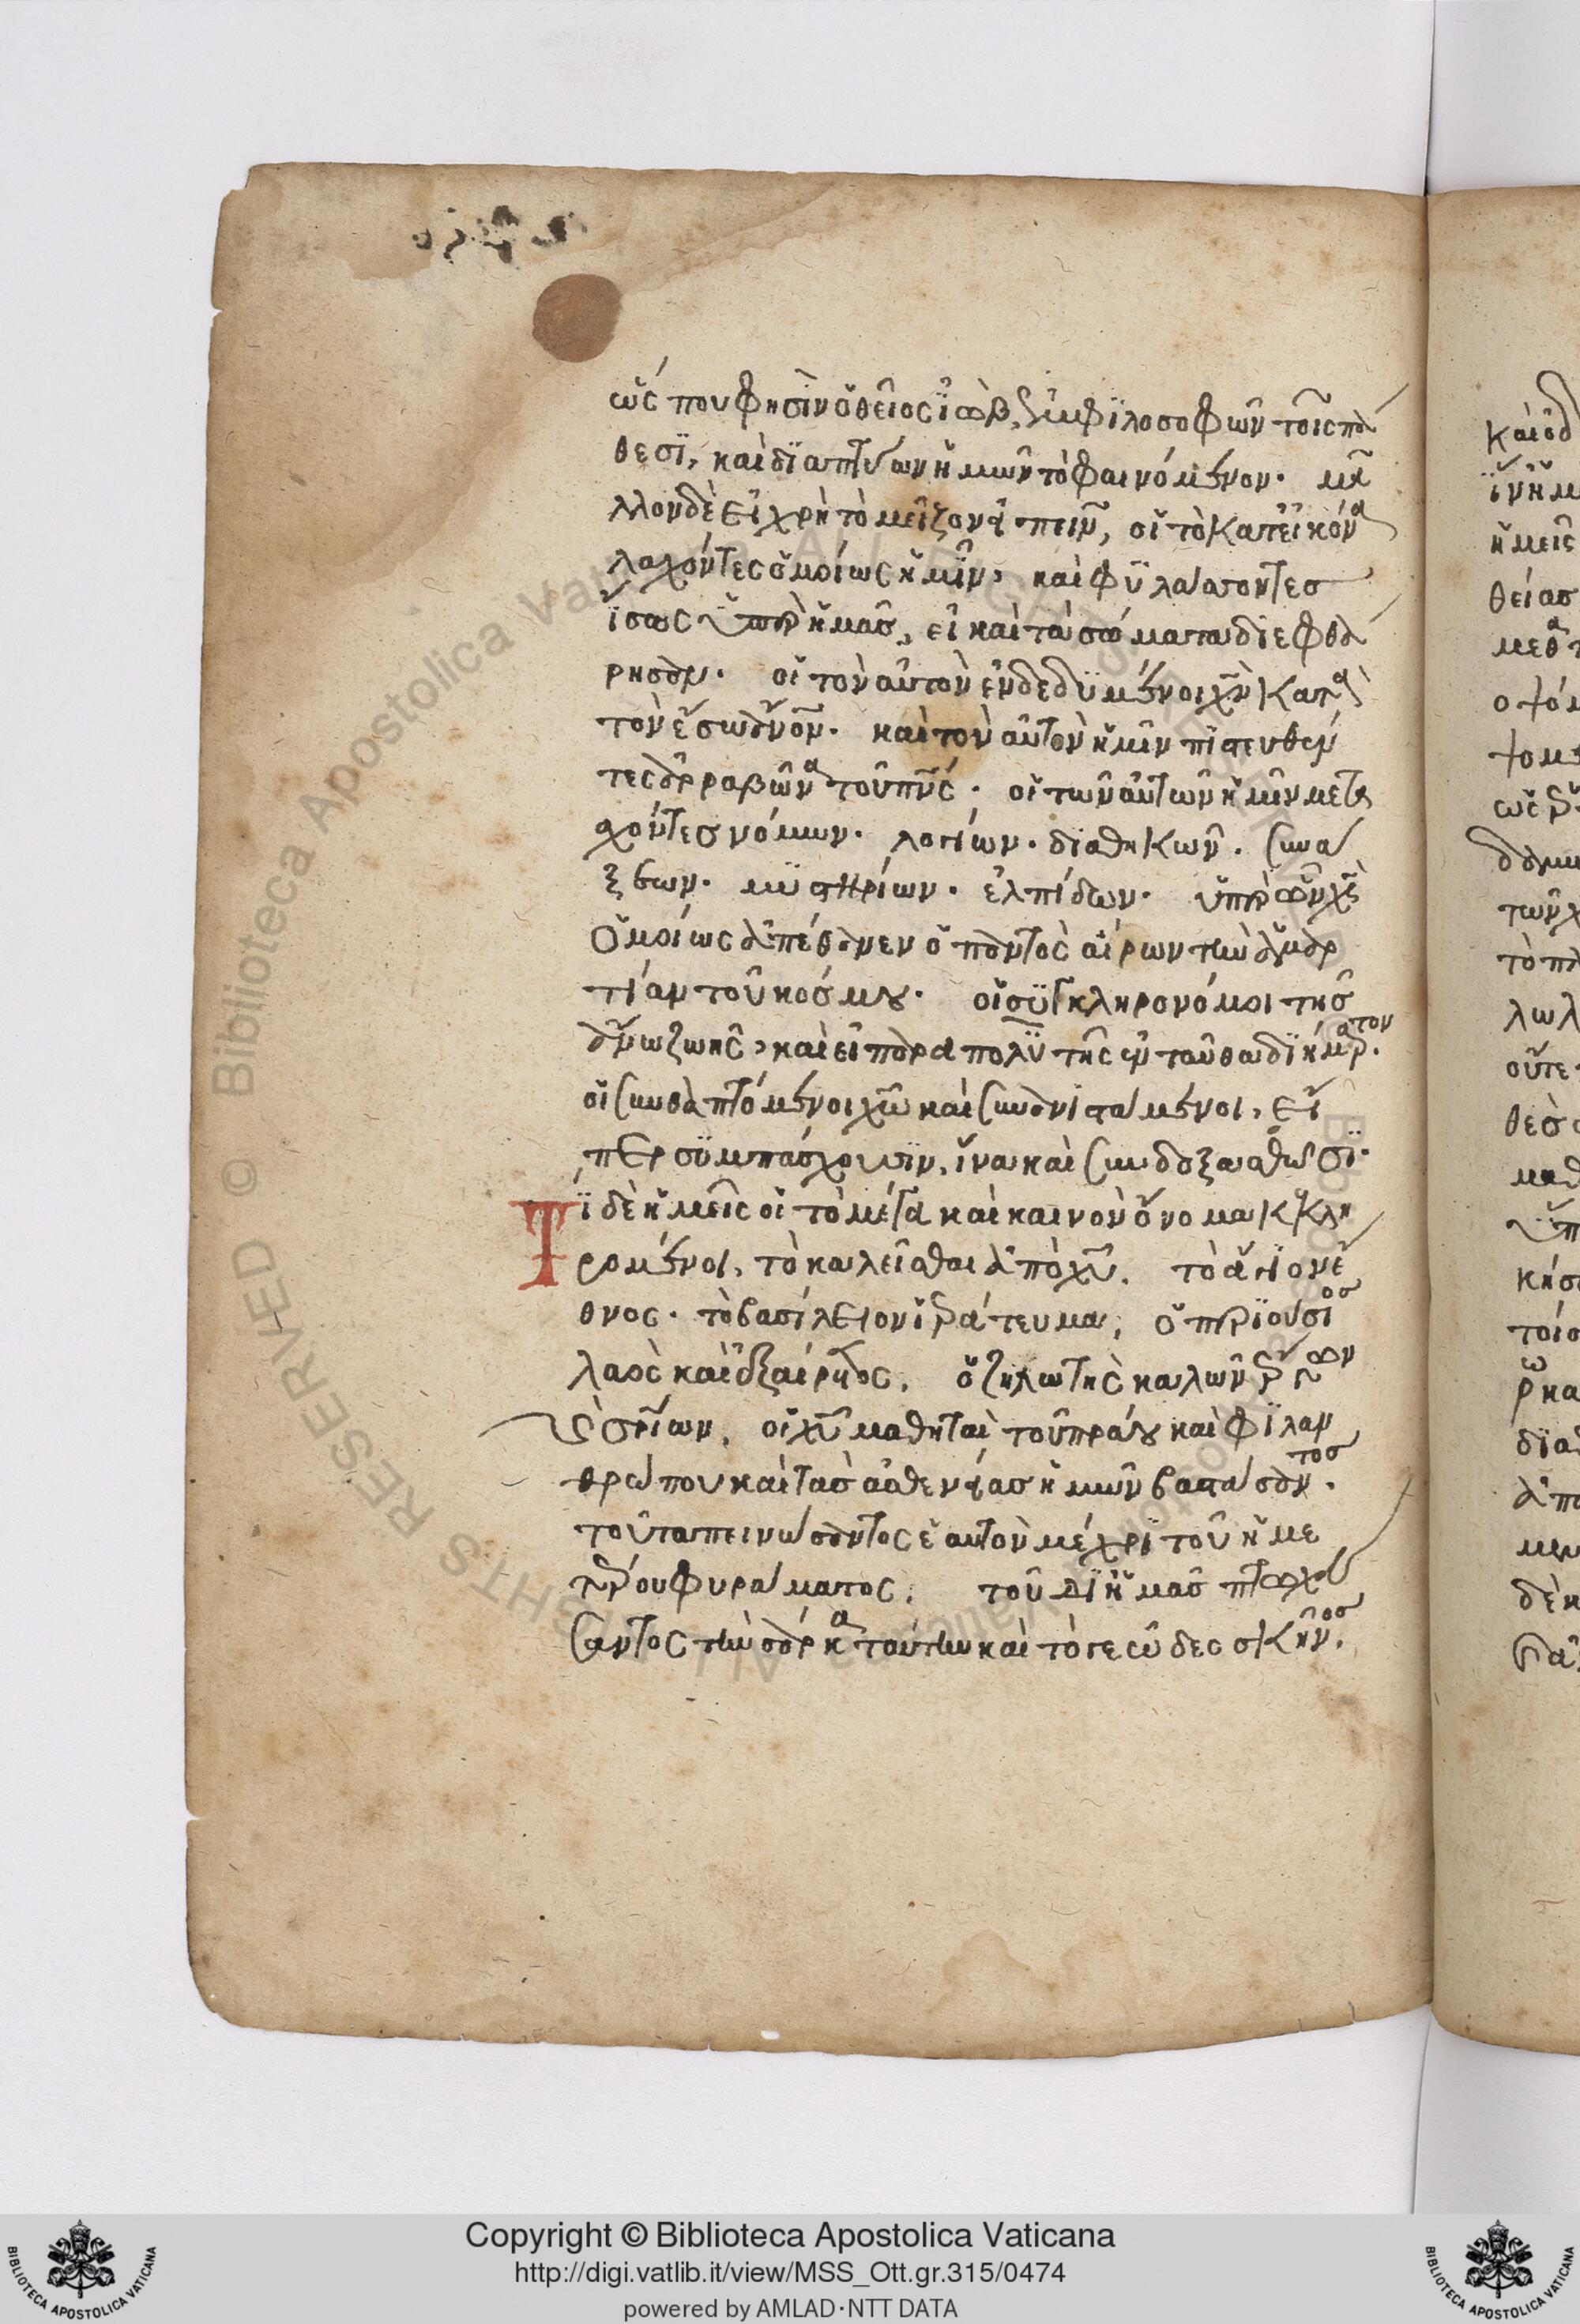 ὥς που φησὶν ὁ θεῖος ἰὼβ, ἐμφιλοσοφῶν τοῖς πά
θεσι, καὶ διαπτύων ἡμῶν τὸ φαινόμενον. μᾶ
λλον δὲ εἰ χρὴ τὸ μεῖζον εἰπεῖν, οἱ τὸ κατ εἰκόνα
λαχόντες ὁμοίως ἡμῖν, καὶ φυλάσσοντες
ἴσως ὑπὲρ ἡμᾶς, εἰ καὶ τὰ σώματα διεφθά
ρησαν. οἱ τὸν αὐτὸν ἐνδεδυμένοι χν κατὰ
τὸν ἔσω ἄνον. καὶ τὸν αὐτὸν ἡμῖν πιστευθέν
τες ἀρραβῶνα τοῦ πνς. οἱ τῶν αὐτῶν ἡμῖν μετα
χόντες νόμων. λογίων. διαθηκῶν. συνά
ξεων. μυστηρίων. ἐλπίδων. ὑπὲρ ὧν χς
ὁμοίως ἀπέθανεν ὁ παντὸς αἴρων τὴν ἁμαρ
τίαν τοῦ κόσμου. οἱ συγκληρονόμοι τῆς
ἄνω ζωῆς, καὶ εἰ παρὰ πολὺ τῆς ἐνταῦθα διήμαρτον.
οἱ συνθαπτόμενοι χω καὶ συνανιστάμενοι, εἴ
περ συμπάσχουσιν, ἵνα καὶ συνδοξασθῶσι.
Τί δὲ ἡμεῖς οἱ τὸ μέγα καὶ καινὸν ὄνομα κεκλη
ρομένοι, τὸ καλεῖσθαι ἀπὸ χυ. τὸ ἅγιον ἔ
θνος. τὸ βασίλειον ἱεράτευμα, ὁ περιούσιος
λαὸς καὶ ἐξαίρετος, ὁ ζηλωτὴς καλῶν ἔργων
καὶ σρίων, οἱ χυ μαθηταὶ τοῦ πράου καὶ φιλαν
θρώπου καὶ τὰς ἀσθενείας ἡμῶν βαστάσαντος.
τοῦ ταπεινώσαντος ἑαυτὸν μέχρι τοῦ ἡμε
τέρου φυράματος. τοῦ δι ἡμᾶς πτωχεύ
σαντος τὴν σάρκα ταύτην καὶ τὸ γεῶδες σκῆνος.
Copyright © Biblioteca Apostolica Vaticana
http://digi.vatlib.it/view/MSS_Ott.gr.315/0474
powered by AMLAD·NTT DATA